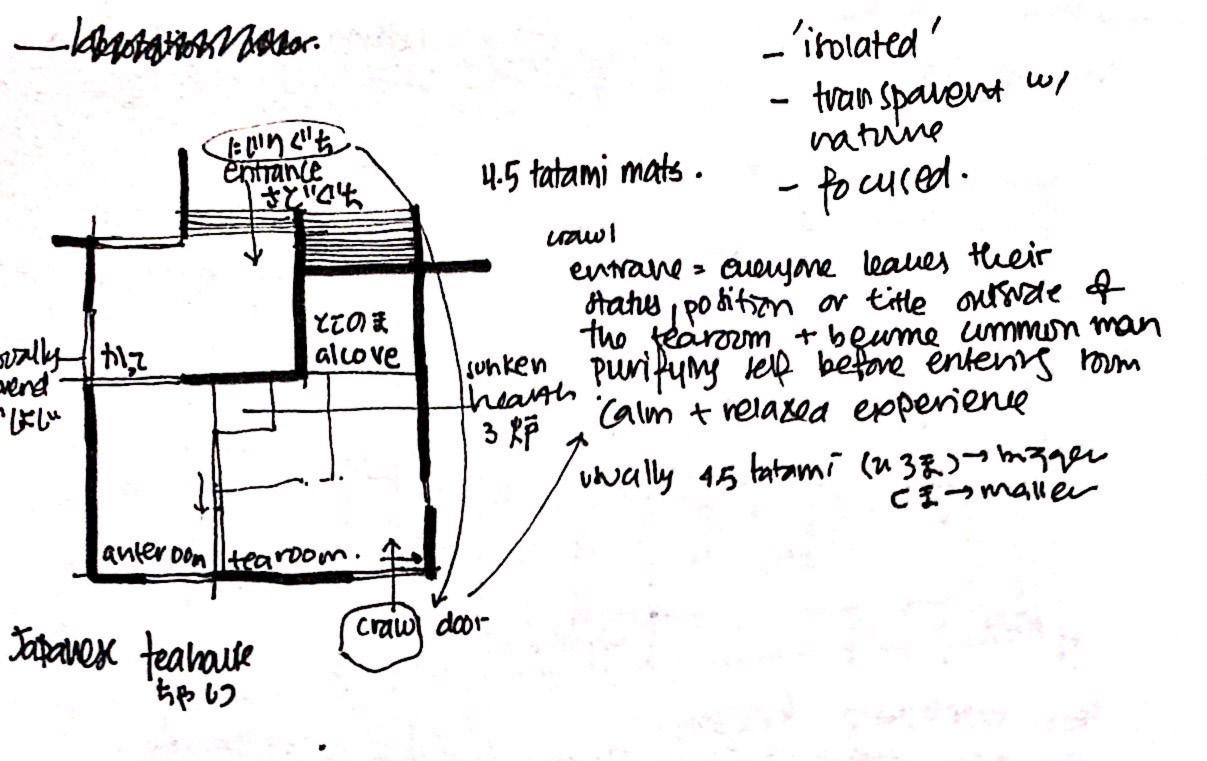 - 'isolated'
- transparent w/
nature
- focused.
にじりぐち
entrance
さどぐち
4.5 tatami mats.
crawl
entrane = everyone leaves their
status, position or title outside of
the tearoom + become common man
purifying self before entering room
calm + relaxed experience
usually 4.5 tatami → bigger
→ smaller
とこのま
alcove
sunken
hearth
炉
anteroom
tearoom.
crawl door
Japanese teahouse
ちゃしつ